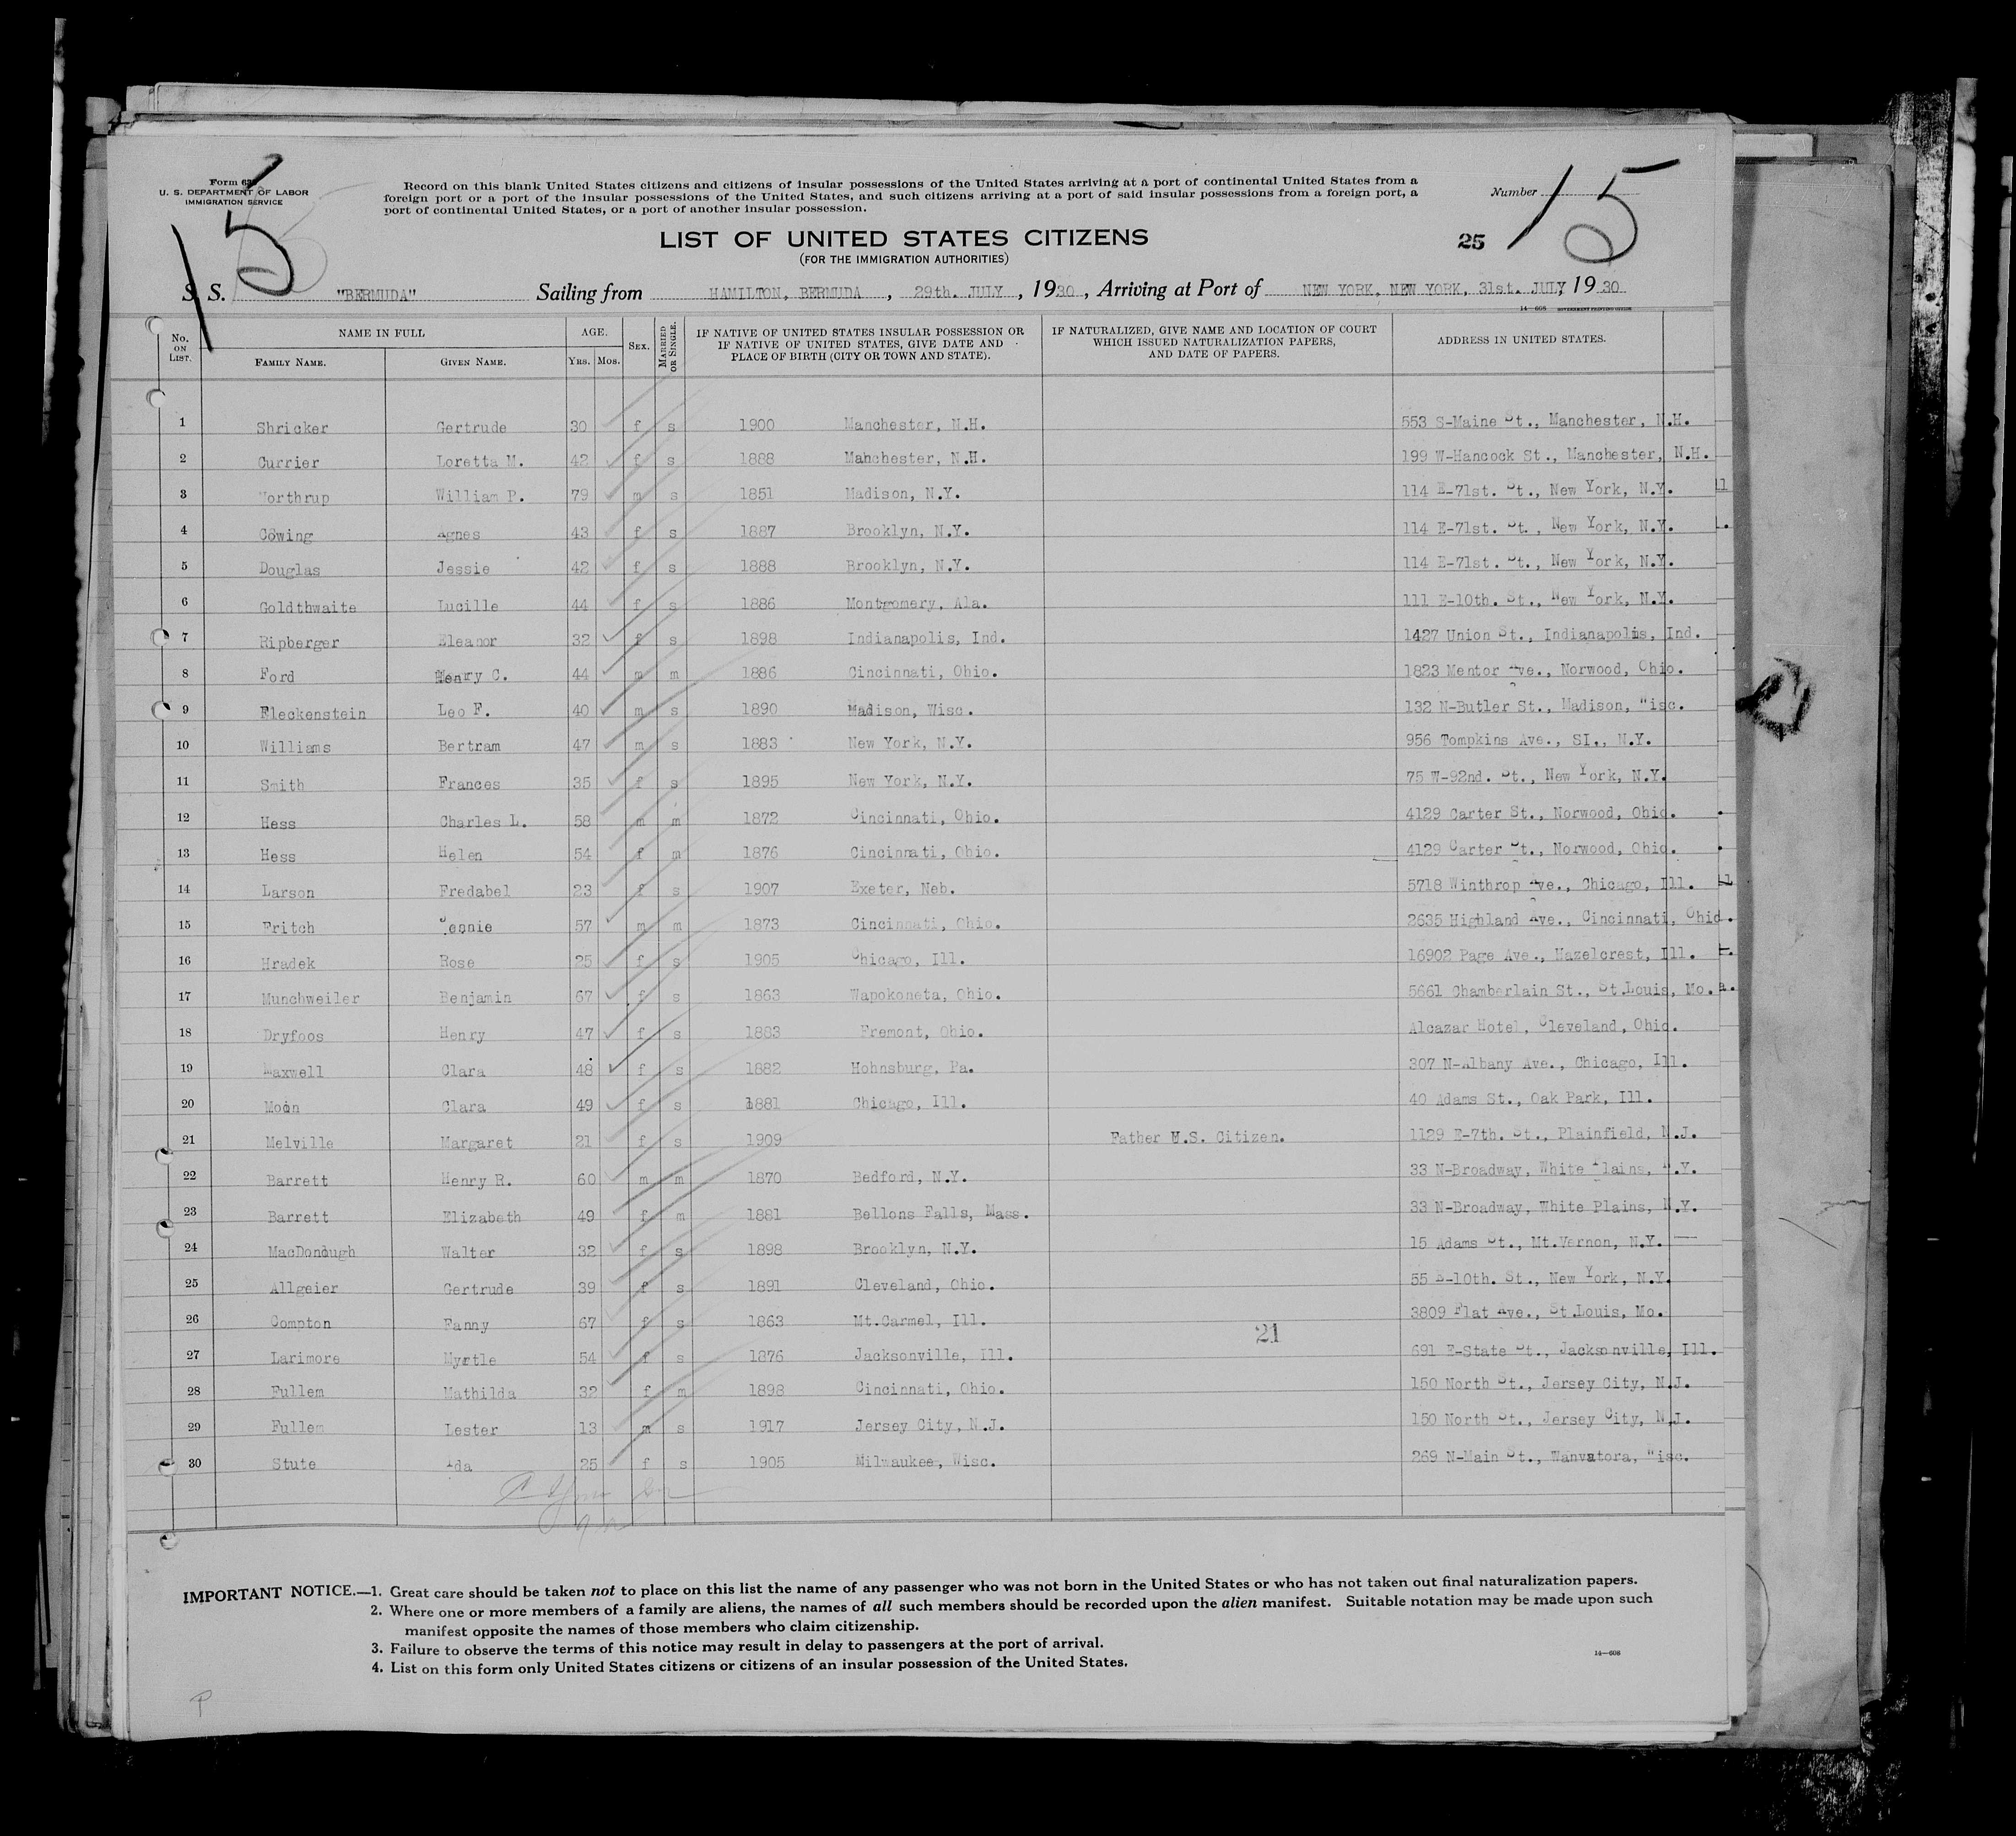 Form 63
U. S. DEPARTMENT OF LABOR
IMMIGRATION SERVICE
15
Record on this blank United States citizens and citizens of insular possessions of the United States arriving at a port of continental United States from a
foreign port or a port of the insular possessions of the United States, and such citizens arriving at a port of said insular possessions from a foreign port, a
port of continental United States, or a port of another insular possession.
Number 15
LIST OF UNITED STATES CITIZENS
(FOR THE IMMIGRATION AUTHORITIES)
25
S. S. "BERMUDA" Sailing from HAMILTON, BERMUDA , 29th. JULY , 1930 , Arriving at Port of NEW YORK, NEW YORK, 31st. JULY, 1930
14—608 GOVERNMENT PRINTING OFFICE
No. ON LIST. NAME IN FULL AGE. SEX. MARRIED OR SINGLE. IF NATIVE OF UNITED STATES INSULAR POSSESSION OR IF NATIVE OF UNITED STATES, GIVE DATE AND PLACE OF BIRTH (CITY OR TOWN AND STATE). IF NATURALIZED, GIVE NAME AND LOCATION OF COURT WHICH ISSUED NATURALIZATION PAPERS, AND DATE OF PAPERS. ADDRESS IN UNITED STATES.
FAMILY NAME. GIVEN NAME. YRS. MOS.
1 Shricker Gertrude 30 f s 1900 Manchester, N.H. 553 S-Maine St., Manchester, N.H.
2 Currier Loretta M. 42 f s 1888 Mahchester, N.H. 199 W-Hancock St., Manchester, N.H.
3 Northrup William P. 79 m s 1851 Madison, N.Y. 114 E-71st. St., New York, N.Y.
4 Cowing Agnes 43 f s 1887 Brooklyn, N.Y. 114 E-71st. St., New York, N.Y.
5 Douglas Jessie 42 f s 1888 Brooklyn, N.Y. 114 E-71st. St., New York, N.Y.
6 Goldthwaite Lucille 44 f s 1886 Montgomery, Ala. 111 E-10th. St., New York, N.Y.
7 Ripberger Eleanor 32 f s 1898 Indianapolis, Ind. 1427 Union St., Indianapolis, Ind.
8 Ford Henry C. 44 m m 1886 Cincinnati, Ohio. 1823 Mentor Ave., Norwood, Ohio.
9 Fleckenstein Leo F. 40 m s 1890 Madison, Wisc. 132 N-Butler St., Madison, "isc.
10 Williams Bertram 47 m s 1883 New York, N.Y. 956 Tompkins Ave., SI., N.Y.
11 Smith Frances 35 f s 1895 New York, N.Y. 75 W-92nd. St., New York, N.Y.
12 Hess Charles L. 58 m m 1872 Cincinnati, Ohio. 4129 Carter St., Norwood, Ohio.
13 Hess Helen 54 f m 1876 Cincinnati, Ohio. 4129 Carter St., Norwood, Ohio.
14 Larson Fredabel 23 f s 1907 Exeter, Neb. 5718 Winthrop Ave., Chicago, Ill.
15 Fritch Jennie 57 m m 1873 Cincinnati, Ohio. 2635 Highland Ave., Cincinnati, Ohio.
16 Hradek Rose 25 f s 1905 Chicago, Ill. 16902 Page Ave., Hazelcrest, Ill.
17 Munchweiler Benjamin 67 f s 1863 Wapokoneta, Ohio. 5661 Chamberlain St., St.Louis, Mo.
18 Dryfoos Henry 47 f s 1883 Fremont, Ohio. Alcazar Hotel, Cleveland, Ohio.
19 Maxwell Clara 48 f s 1882 Hohnsburg, Pa. 307 N-Albany Ave., Chicago, Ill.
20 Moon Clara 49 f s 1881 Chicago, Ill. 40 Adams St., Oak Park, Ill.
21 Melville Margaret 21 f s 1909 Father U.S. Citizen. 1129 E-7th. St., Plainfield, N.J.
22 Barrett Henry R. 60 m m 1870 Bedford, N.Y. 33 N-Broadway, White Plains, N.Y.
23 Barrett Elizabeth 49 f m 1881 Bellons Falls, Mass. 33 N-Broadway, White Plains, N.Y.
24 MacDonough Walter 32 f s 1898 Brooklyn, N.Y. 15 Adams St., Mt.Vernon, N.Y.
25 Allgeier Gertrude 39 f s 1891 Cleveland, Ohio. 55 E-10th. St., New York, N.Y.
26 Compton Fanny 67 f s 1863 Mt.Carmel, Ill. 3809 Flat Ave., St.Louis, Mo.
21
27 Larimore Myrtle 54 f s 1876 Jacksonville, Ill. 691 E-State St., Jacksonville, Ill.
28 Fullem Mathilda 32 f m 1898 Cincinnati, Ohio. 150 North St., Jersey City, N.J.
29 Fullem Lester 13 m s 1917 Jersey City, N.J. 150 North St., Jersey City, N.J.
30 Stute Ada 25 f s 1905 Milwaukee, Wisc. 269 N-Main St., Wanvatora, "isc.
IMPORTANT NOTICE.—1. Great care should be taken not to place on this list the name of any passenger who was not born in the United States or who has not taken out final naturalization papers.
2. Where one or more members of a family are aliens, the names of all such members should be recorded upon the alien manifest. Suitable notation may be made upon such
manifest opposite the names of those members who claim citizenship.
3. Failure to observe the terms of this notice may result in delay to passengers at the port of arrival.
4. List on this form only United States citizens or citizens of an insular possession of the United States.
14—608